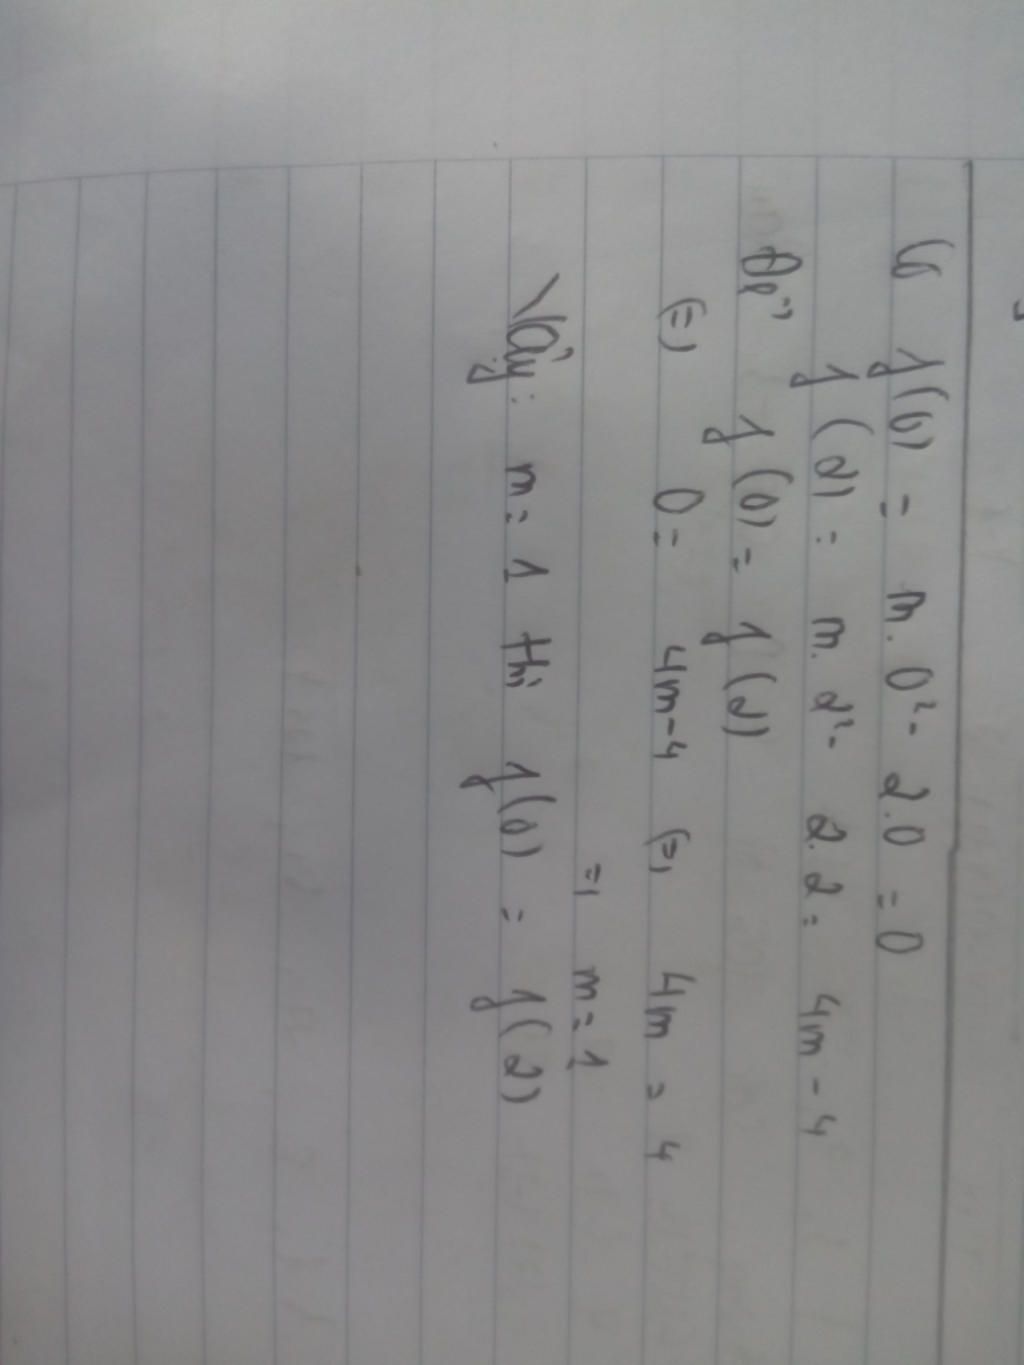 Có f(0) = m. 0² - 2.0 = 0
f(2) = m. 2² - 2.2 = 4m - 4
Để f(0) = f(2)
(=) 0 = 4m - 4 (=) 4m = 4
=) m = 1
Vậy: m = 1 thì f(0) = f(2)